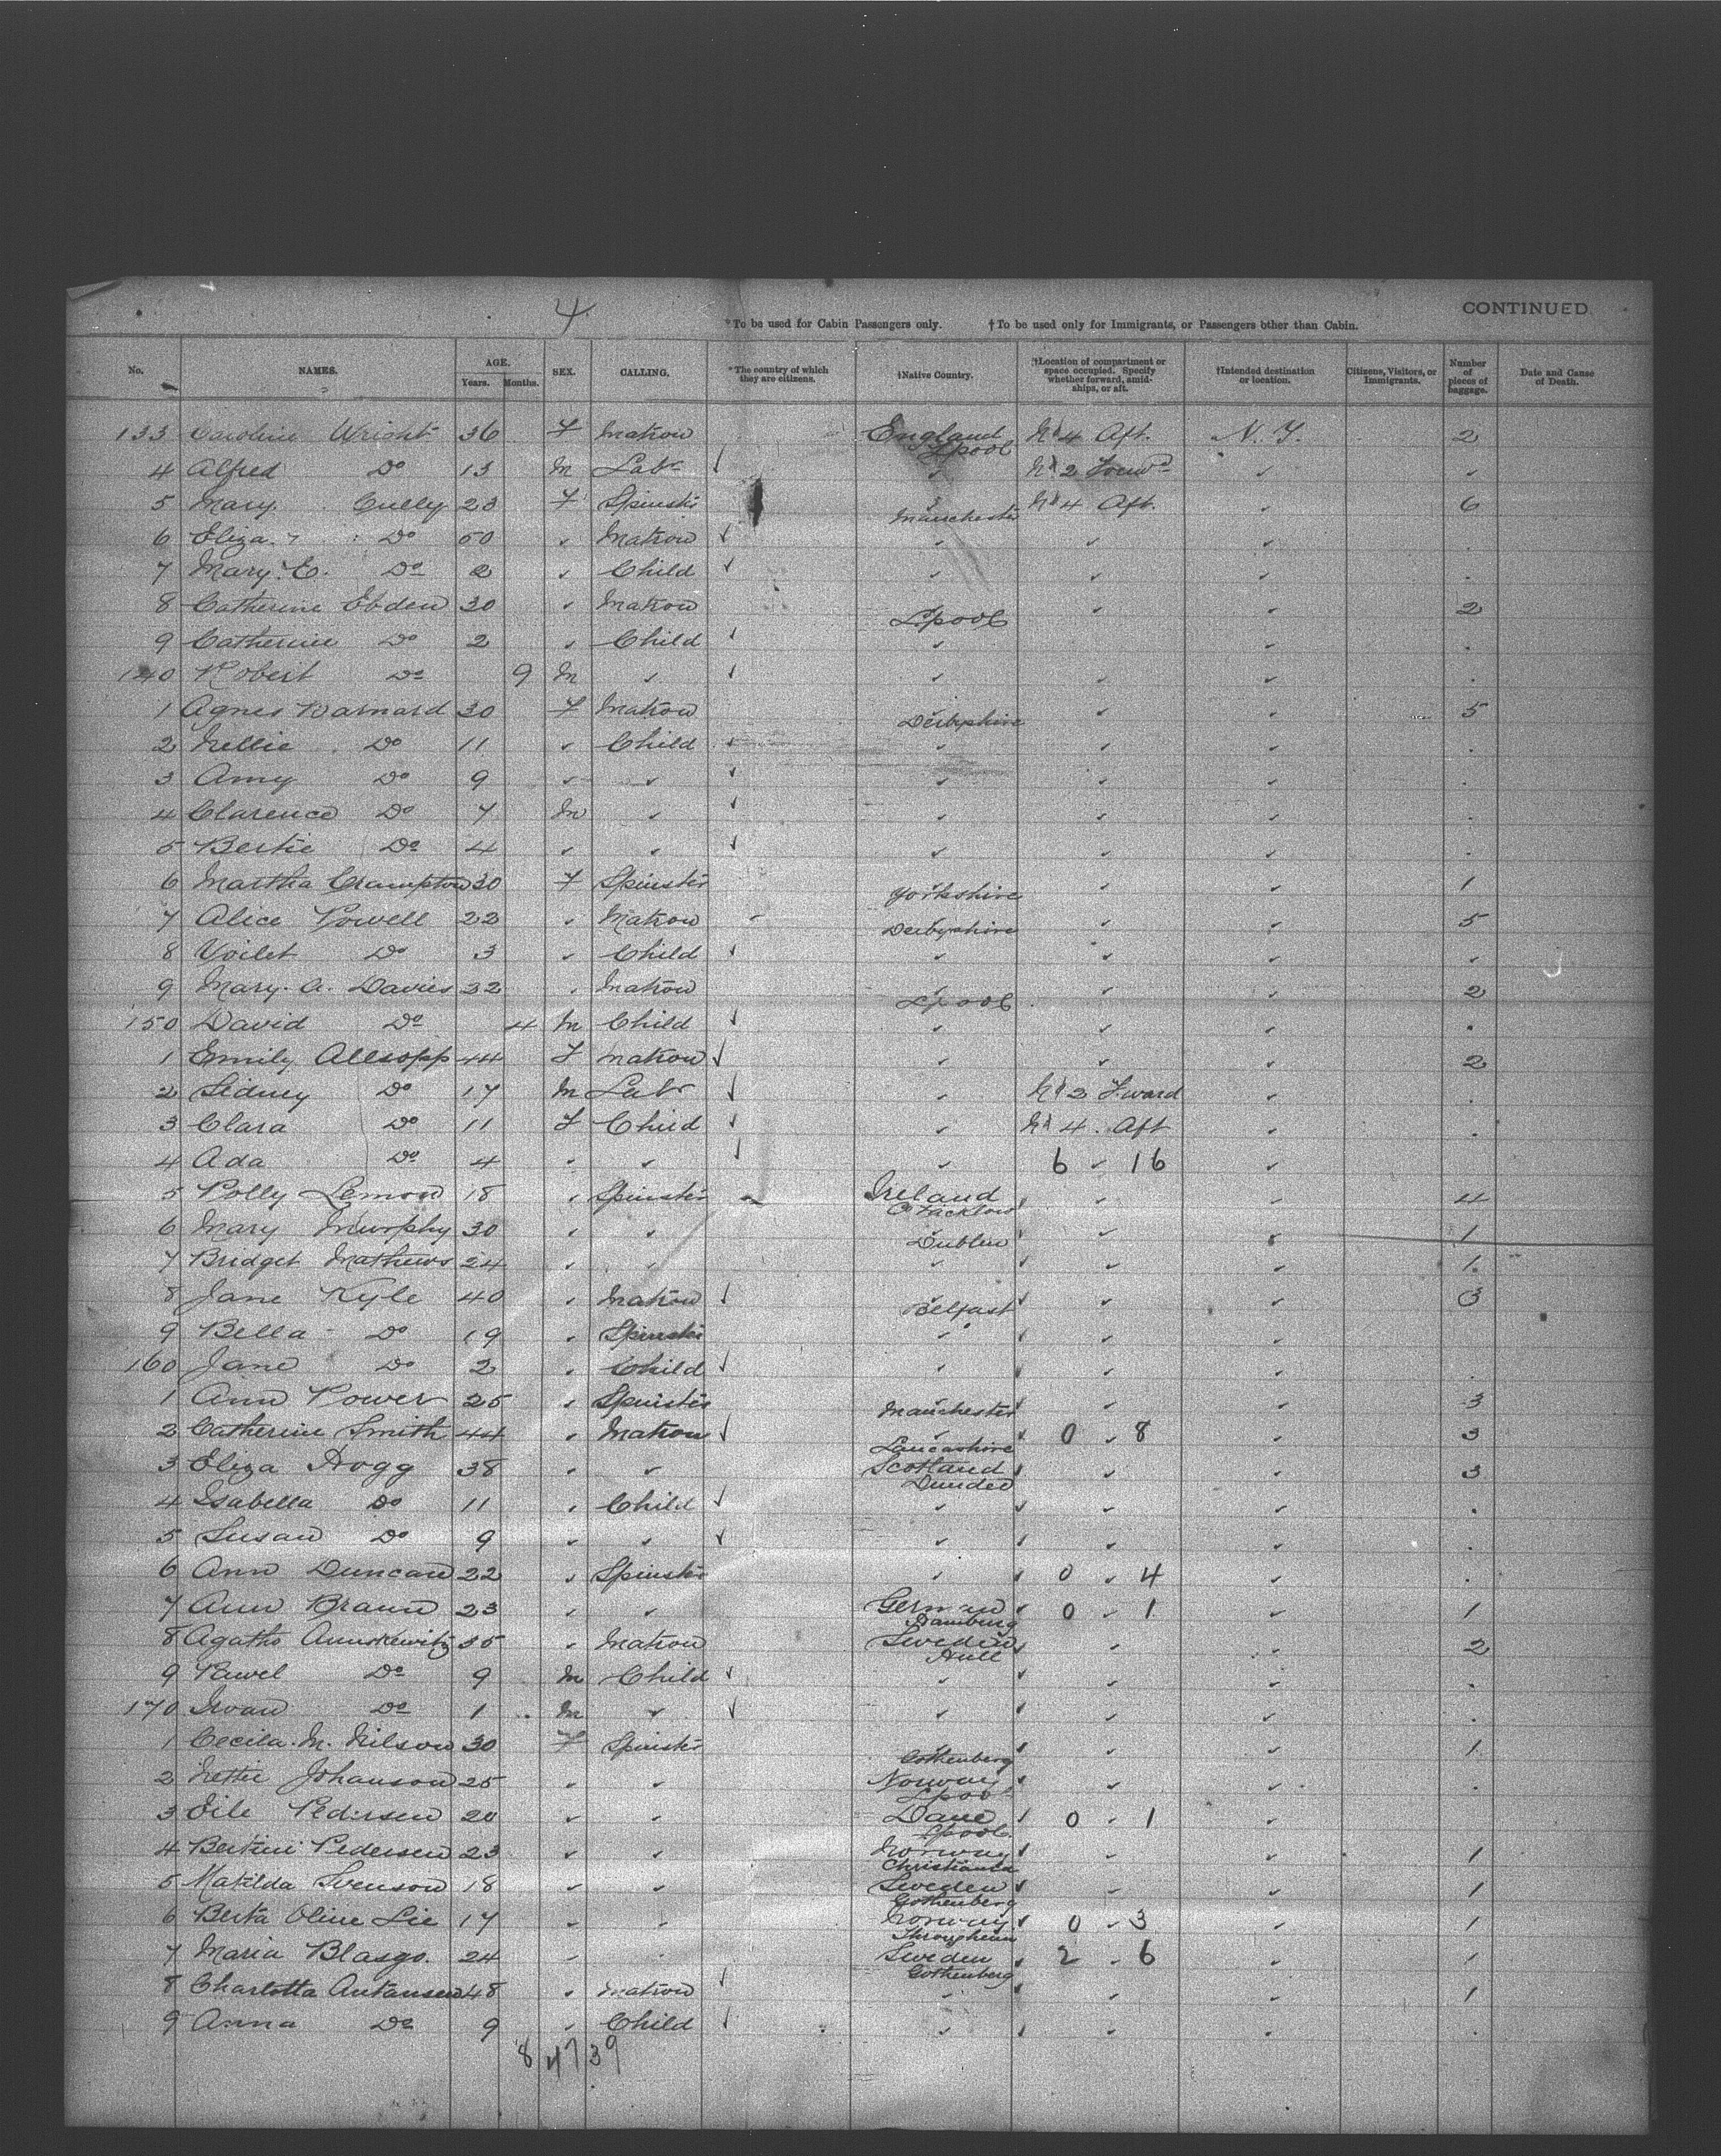 4
CONTINUED.
*To be used for Cabin Passengers only. †To be used only for Immigrants, or Passengers other than Cabin.
No. NAMES. AGE. Years. Months. SEX. CALLING. *The country of which they are citizens. †Native Country. †Location of compartment or space occupied. Specify whether forward, amidships, or aft. †Intended destination or location. Citizens, Visitors, or Immigrants. Number of pieces of baggage. Date and Cause of Death.
133 Caroline Wright 36 F Matron England L'pool No 4 Aft. N. Y. 2
4 Alfred Do 13 M Labr ✓ ✓ No 2 Forwd ✓ ✓
5 Mary Cully 23 F Spinster Manchester No 4 Aft. ✓ 6
6 Eliza Do 50 ✓ Matron ✓ ✓ ✓ ✓
7 Mary E. Do 2 ✓ Child ✓ ✓ ✓ ✓
8 Catherine Ebden 30 ✓ Matron L'pool ✓ ✓ 2
9 Catherine Do 2 ✓ Child ✓ ✓ ✓
140 Robert Do 9 M ✓ ✓ ✓ ✓ ✓
1 Agnes Barnard 30 F Matron Derbyshire ✓ ✓ 5
2 Nellie Do 11 ✓ Child ✓ ✓ ✓ ✓
3 Amy Do 9 ✓ ✓ ✓ ✓ ✓ ✓
4 Clarence Do 7 M ✓ ✓ ✓ ✓ ✓
5 Bertie Do 4 ✓ ✓ ✓ ✓ ✓ ✓
6 Martha Crampton 30 F Spinster Yorkshire ✓ ✓ 1
7 Alice Powell 22 ✓ Matron Derbyshire ✓ ✓ 5
8 Voilet Do 3 ✓ Child ✓ ✓ ✓ ✓
9 Mary. A. Davies 32 ✓ Matron L'pool ✓ ✓ 2
150 David Do 4 M Child ✓ ✓ ✓ ✓
1 Emily Allsopp 44 F Matron ✓ ✓ ✓ ✓ 2
2 Sidney Do 17 M Labr ✓ ✓ No 2 F'ward ✓
3 Clara Do 11 F Child ✓ ✓ No 4. Aft ✓
4 Ada Do 4 ✓ ✓ ✓ ✓ 6 ✓ 16 ✓
5 Polly Lemon 18 ✓ Spinster Ireland ✓ ✓ 4
6 Mary Murphy 30 ✓ ✓ Dublin ✓ ✓ 1
7 Bridget Mathews 24 ✓ ✓ ✓ ✓ ✓ 1
8 Jane Kyle 40 ✓ Matron ✓ Belfast ✓ ✓ 3
9 Bella Do 19 ✓ Spinster ✓ ✓ ✓
160 Jane Do 2 ✓ Child ✓ ✓ ✓ ✓
1 Ann Power 25 ✓ Spinster Manchester ✓ ✓ 3
2 Catherine Smith 44 ✓ Matron ✓ Lancashire 0 ✓ 8 ✓ 3
3 Eliza Hogg 38 ✓ ✓ Scotland Dundee ✓ ✓ 3
4 Isabella Do 11 ✓ Child ✓ ✓ ✓ ✓
5 Susan Do 9 ✓ ✓ ✓ ✓ ✓ ✓
6 Ann Duncan 22 ✓ Spinster ✓ 0 ✓ 4 ✓
7 Ann Braun 23 ✓ ✓ German Hamburg 0 ✓ 1 ✓ 1
8 Agatha 35 ✓ Matron Sweden Hull ✓ ✓ 2
9 Pawel Do 9 M Child ✓ ✓ ✓ ✓
170 Iwan Do 1 M ✓ ✓ ✓ ✓ ✓
1 Cecila. M. Nilson 30 F Spinster Gothenberg ✓ ✓ 1
2 Nettie Johanson 25 ✓ ✓ Norway L'pool ✓ ✓
3 Eile Pedersen 20 ✓ ✓ Dane L'pool 0 ✓ 1 ✓
4 Bertini Pedersen 23 ✓ ✓ Norway Christiania ✓ ✓ 1
5 Matilda Svenson 18 ✓ ✓ Sweden Gothenberg ✓ ✓ 1
6 Berta Oline Lie 17 ✓ ✓ Norway 0 ✓ 3 ✓ 1
7 Maria Blasgo. 24 ✓ ✓ Sweden Gothenberg 2 ✓ 6 ✓ 1
8 Charlotta Antansen 48 ✓ Matron ✓ ✓ ✓ ✓ 1
9 Anna Do 9 ✓ Child ✓ ✓ ✓ ✓
8 47 39